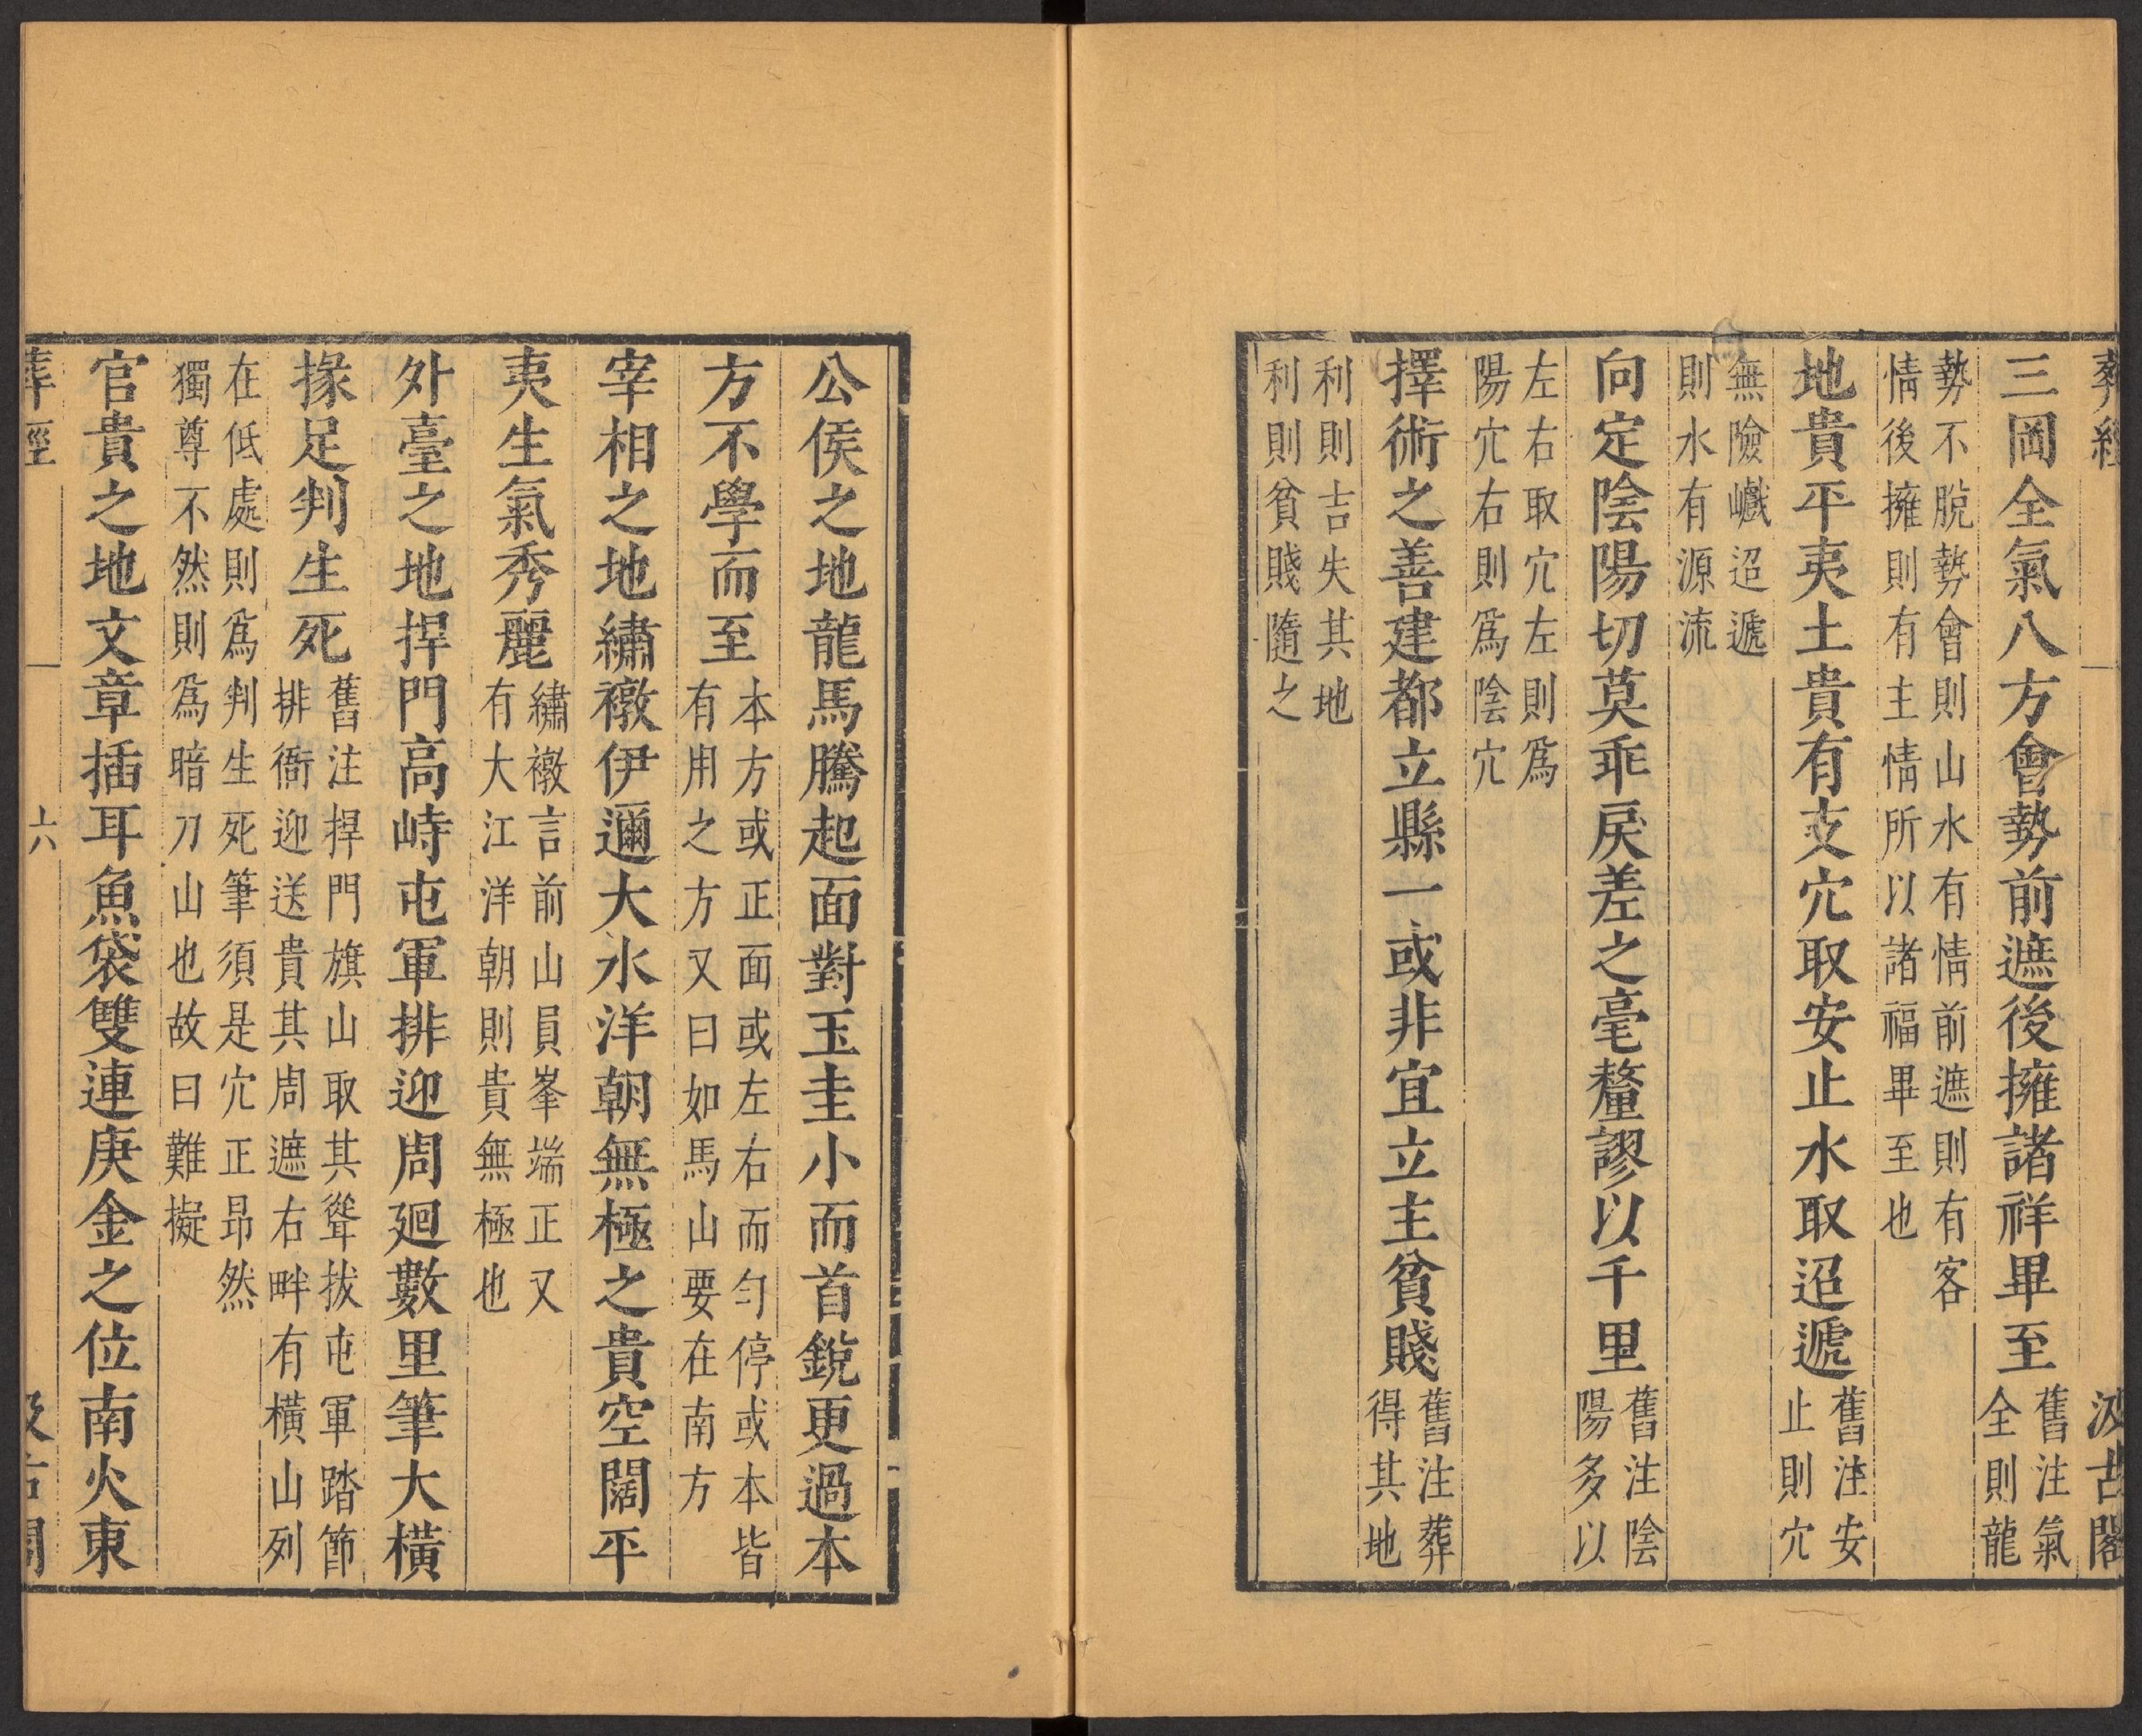 葬經
汲古閣
三岡全氣八方會勢前遮後擁諸祥畢至
舊注氣
全則龍
勢不脫勢會則山水有情前遮則有客
情後擁則有主情所以諸福畢至也
地貴平夷土貴有支穴取安止水取迢遞
舊注安
止則穴
無險巇迢遞
則水有源流
向定陰陽切莫乖戾差之毫釐謬以千里
舊注陰
陽多以
左右取穴左則為
陽穴右則為陰穴
擇術之善建都立縣一或非宜立主貧賤
舊注葬
得其地
利則吉失其地
利則貧賤隨之
公侯之地龍馬騰起面對玉圭小而首銳更過本
方不學而至
本方或正面或左右而勻停或本皆
有用之方又曰如馬山要在南方
宰相之地繡襯伊邇大水洋朝無極之貴空闊平
夷生氣秀麗
繡襯言前山員峯端正又
有大江洋朝則貴無極也
外臺之地捍門高峙屯軍排迎周廻數里筆大橫
掾足判生死
舊注捍門旗山取其聳拔屯軍踏節
排衙迎送貴其周遮右畔有橫山列
在低處則為判生死筆須是穴正昂然
獨尊不然則為暗刀山也故曰難擬
官貴之地文章插耳魚袋雙連庚金之位南火東
葬經
六
汲古閣